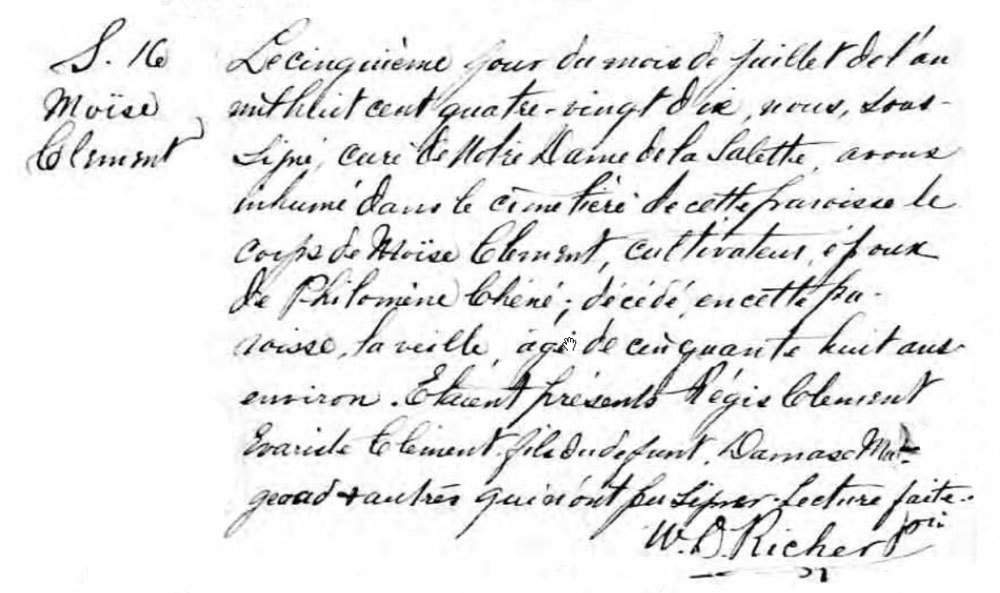 S. 16
Moïse
Clement
Le cinquième jour du mois de Juillet de l'an
mil huit cent quatre-vingt dix, nous, sous-
signé, curé de Notre Dame de la Salette, avons
inhumé dans le cimetière de cette paroisse le
corps de Moïse Clement, cultivateur, époux
de Philomène Chéné; décédé, en cette pa-
roisse, la veille, âgé de cinquante huit ans
environ. Etaient présents Régis Clement
Evariste Clément fils du défunt, Damase
& autres qui n'ont pu signer. Lecture faite.
W. D. Richer ptr.